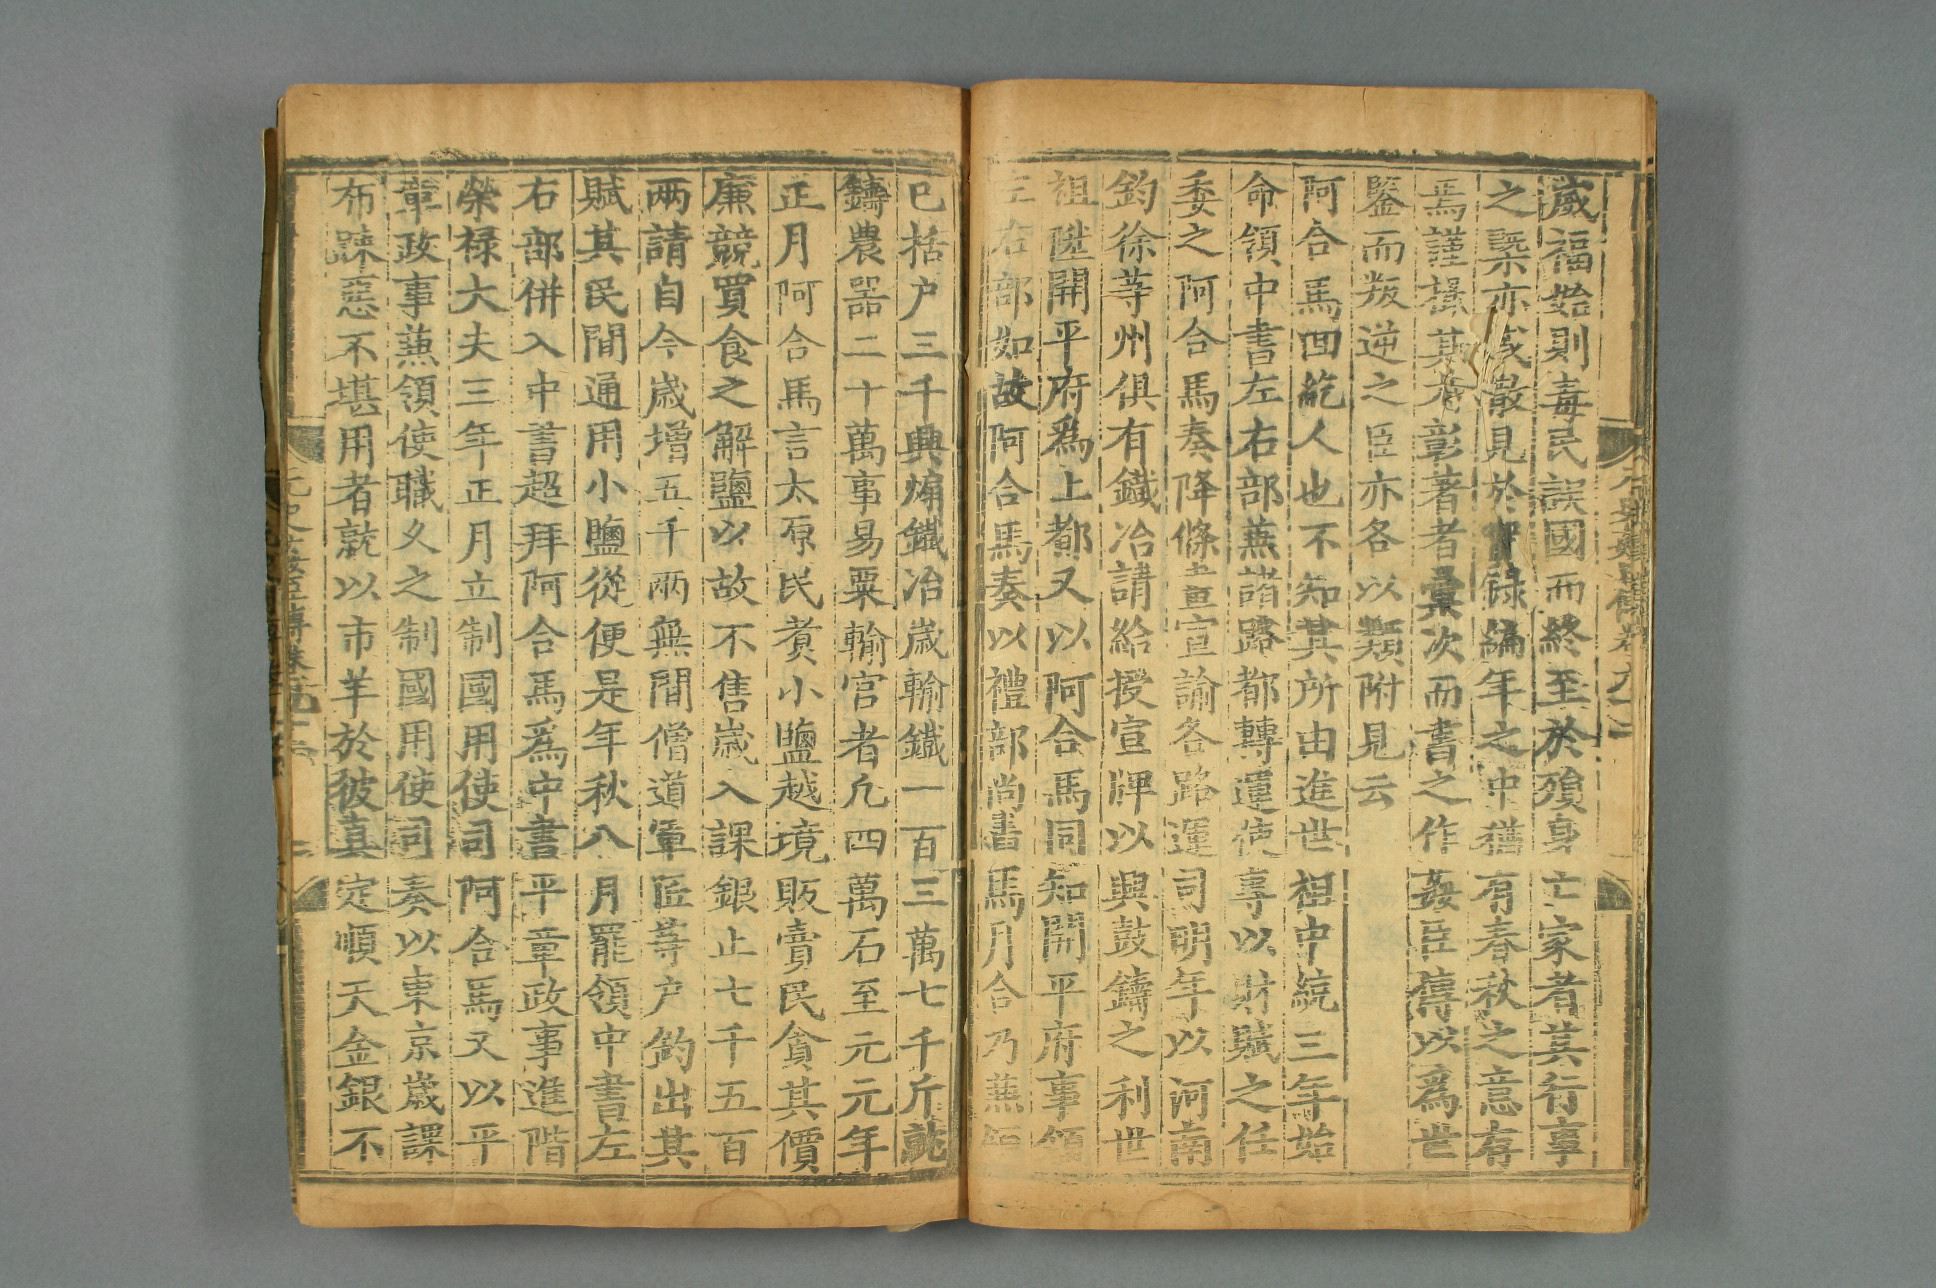 威福始則毒民誤國而終至於殞身亡家者其行事
之槩亦或散見於實録編年之中猶有春秋之意存
焉謹摭其尤彰著者彙次而書之作姦臣傳以爲世
鑒而叛逆之臣亦各以類附見云
阿合馬回紇人也不知其所由進世祖中統三年始
命領中書左右部兼諸路都轉運使専以財賦之任
委之阿合馬奏降條畫宣諭各路運司明年以河南
鈞徐等州俱有鐵冶請給授宣牌以興鼓鑄之利世
祖陞開平府爲上都又以阿合馬同知開平府事領
左右部如故阿合馬奏以禮部尚書馬月合乃兼領
已括户三千興煽鐵冶歳輸鐵一百三萬七千斤就
鑄農器二十萬事易粟輸官者凢四萬石至元元年
正月阿合馬言太原民煑小鹽越境販賣民貪其價
廉競買食之解鹽以故不售歳入課銀止七千五百
两請自今歳增五千兩無間僧道軍匠等户鈞出其
賦其民間通用小鹽從便是年秋八月罷領中書左
右部併入中書超拜阿合馬爲中書平章政事進階
榮禄大夫三年正月立制國用使司阿合馬又以平
章政事兼領使職乆之制國用使司奏以東京歳課
布踈惡不堪用者就以市羊於彼真定順天金銀不